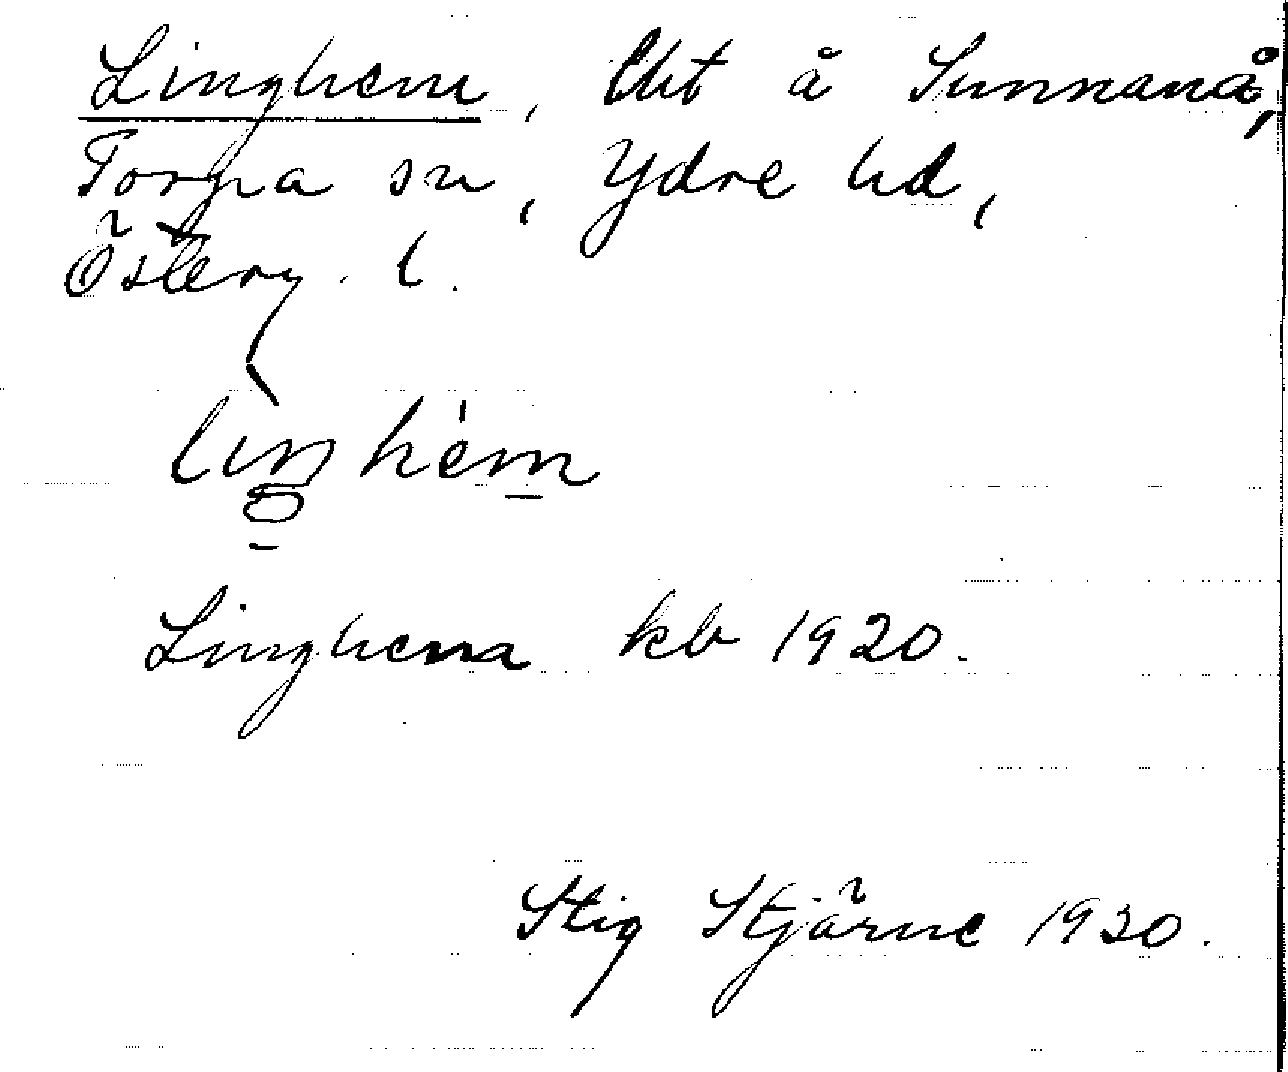 Linghem, lht å Sunnanå,
Torpa sn, Ydre hd,
Österg. l.
liŋhèm
Linghem kb 1920.
Stig Stjärne 1930.